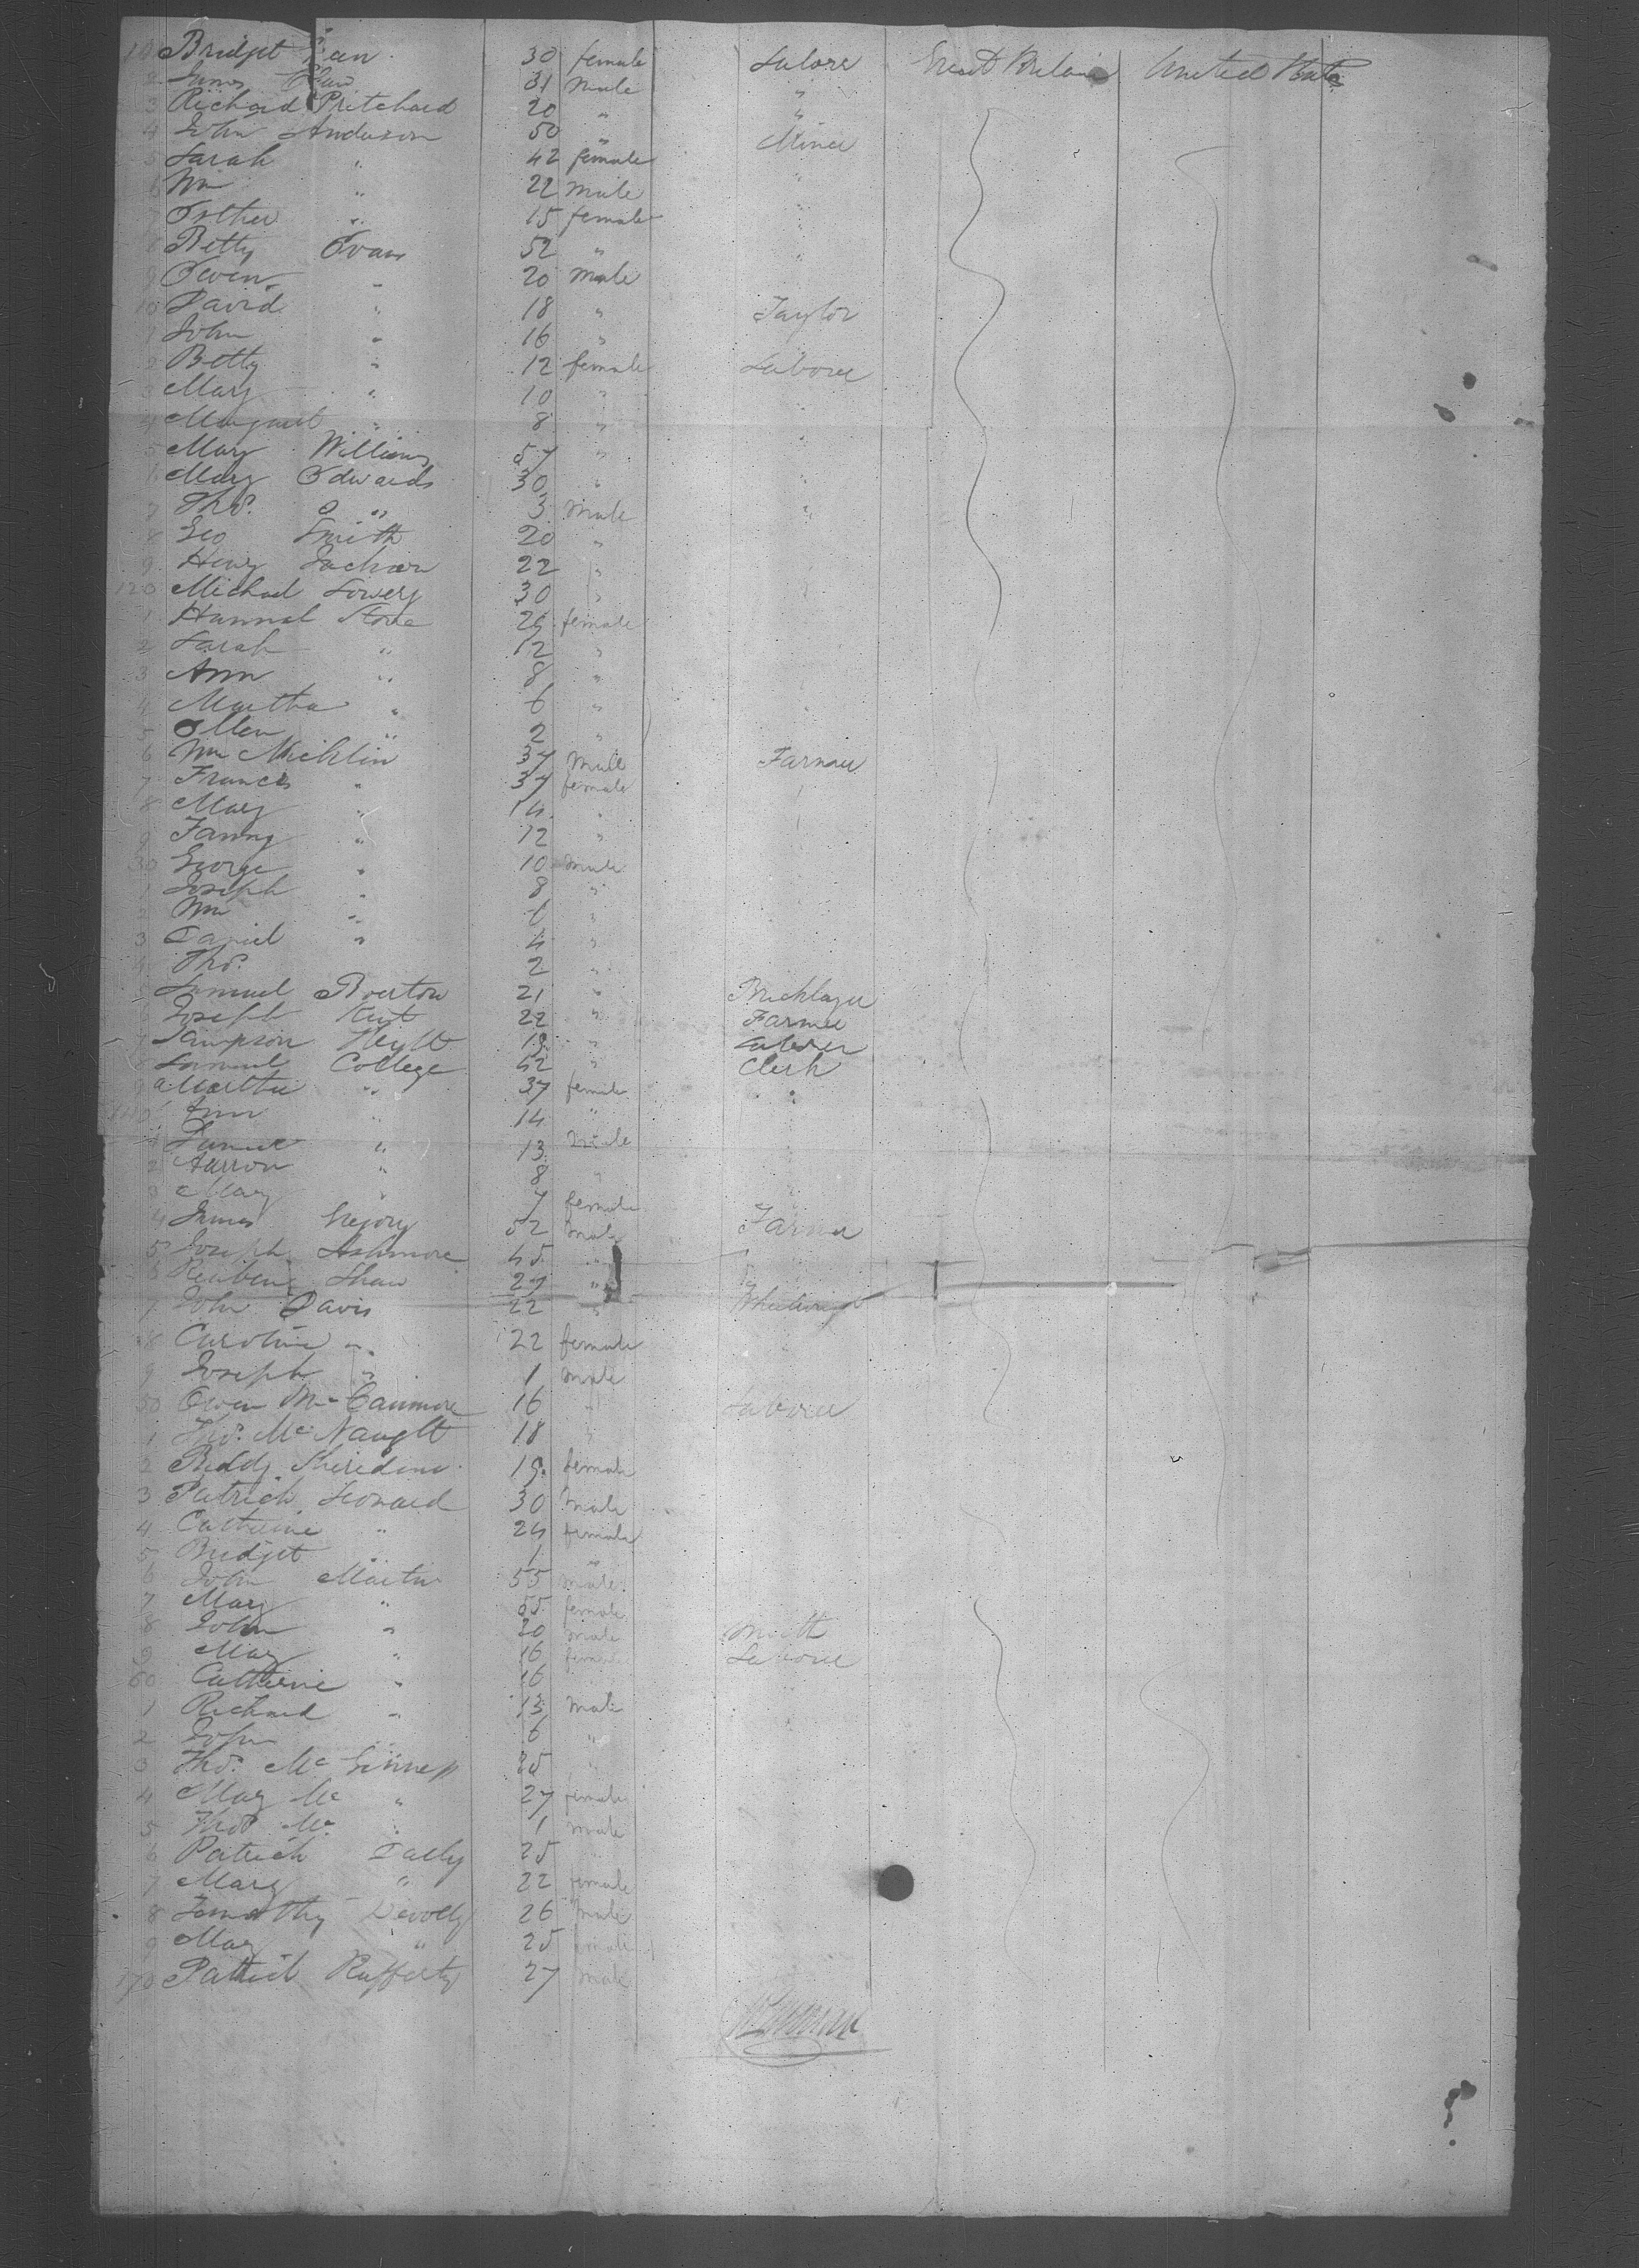 Bridget 30 female Labore Great Britain United States
2 James 31 Male "
3 Richard Pritchard 20 " "
4 John Anderson 50 " Miner
5 Sarah " 42 female "
6 Wm " 22 Male "
7 Esther " 15 female "
8 Betty Evans 52 " "
9 Owen " 20 Male
10 David " 18 " Taylor
1 John " 16 "
2 Betty " 12 female Laborer
3 Mary " 10 "
4 Margaret " 8 "
5 Mary Williams 57 "
6 Mary Edwards 30 "
7 Thos. " 3 Male
8 Geo Smith 20 "
9 Henry Jackson 22 "
120 Michael Lowery 30 "
1 Hannah Stone 26 female
2 Sarah " 12 "
3 Ann " 8 "
4 Martha " 6 "
5 Ellen " 2 "
6 Wm Micklin 37 Male Farmer
7 Frances " 37 female
8 Mary " 14 "
9 Fanny " 12 "
30 George " 10 Male
1 Joseph " 8 "
2 Wm " 6 "
3 Daniel " 4 "
4 Thos. 2 "
5 Samuel Overton 21 " Bricklayer
6 Joseph Kent 22 " Farmer
7 Sampson 19 " Laborer
8 Samuel College 52 " Clerk
9 Martha " 37 female "
140 Ann " 14 "
1 Samuel " 13 Male
2 Aarron " 8 "
3 Mary " 7 female
4 James Gregory 52 Male Farmer
5 Joseph Ashmore 45 "
6 Reubene Shaw 27 "
7 John Davis 22 " Wheelwright
8 Caroline " 22 female
9 Joseph " 1 Male
50 Owen Mc 16 " Laborer
1 Thos. McNaught 18 "
2 Biddy Sheridan 19 female
3 Patrick Leonard 30 Male
4 Catherine " 24 female
5 Bridget " 1 "
6 John Martin 55 Male
7 Mary " 55 female
8 John " 20 Male Smith
9 Mary " 16 female Laborer
60 Catherine " 16
1 Richard " 13 Male
2 John 6 "
3 Thos. McGinness 25 "
4 Mary Mc " 27 female
5 Thos Mc 1 Male
6 Patrick Dally 25
7 Mary " 22 female
8 Timothy Devolly 26 Male
9 Mary " 25 female
170 Patrick Rafferty 27 Male